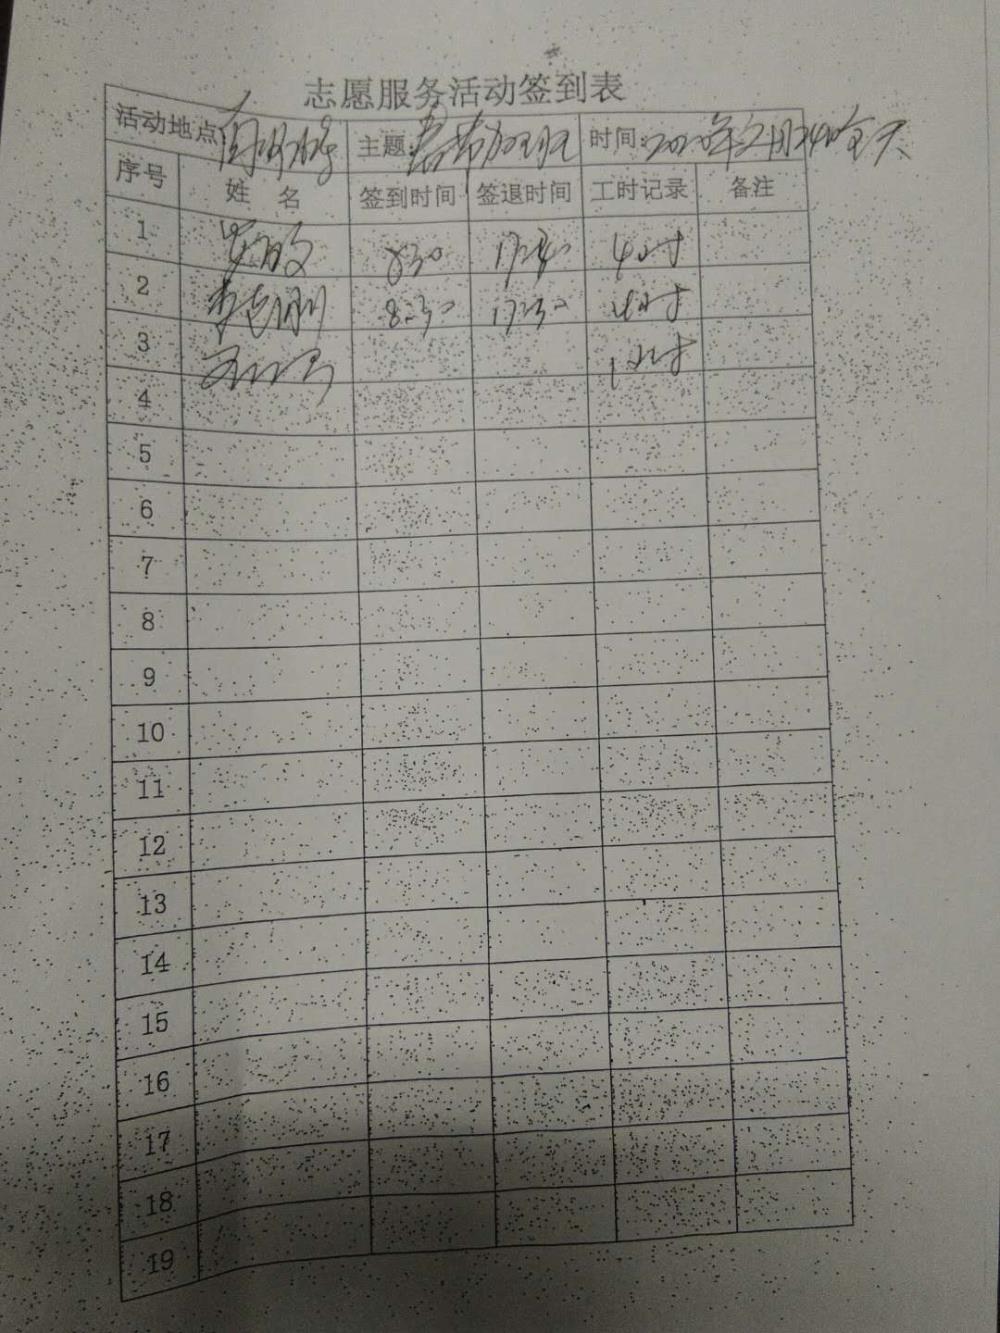 志愿服务活动签到表
活动地点 主题: 加班 时间:2020年2月24日全天
序号 姓 名 签到时间 签退时间 工时记录 备注
1 830 17:30 4小时
2 8:30 17:30 4小时
3 小时
4
5
6
7
8
9
10
11
12
13
14
15
16
17
18
19